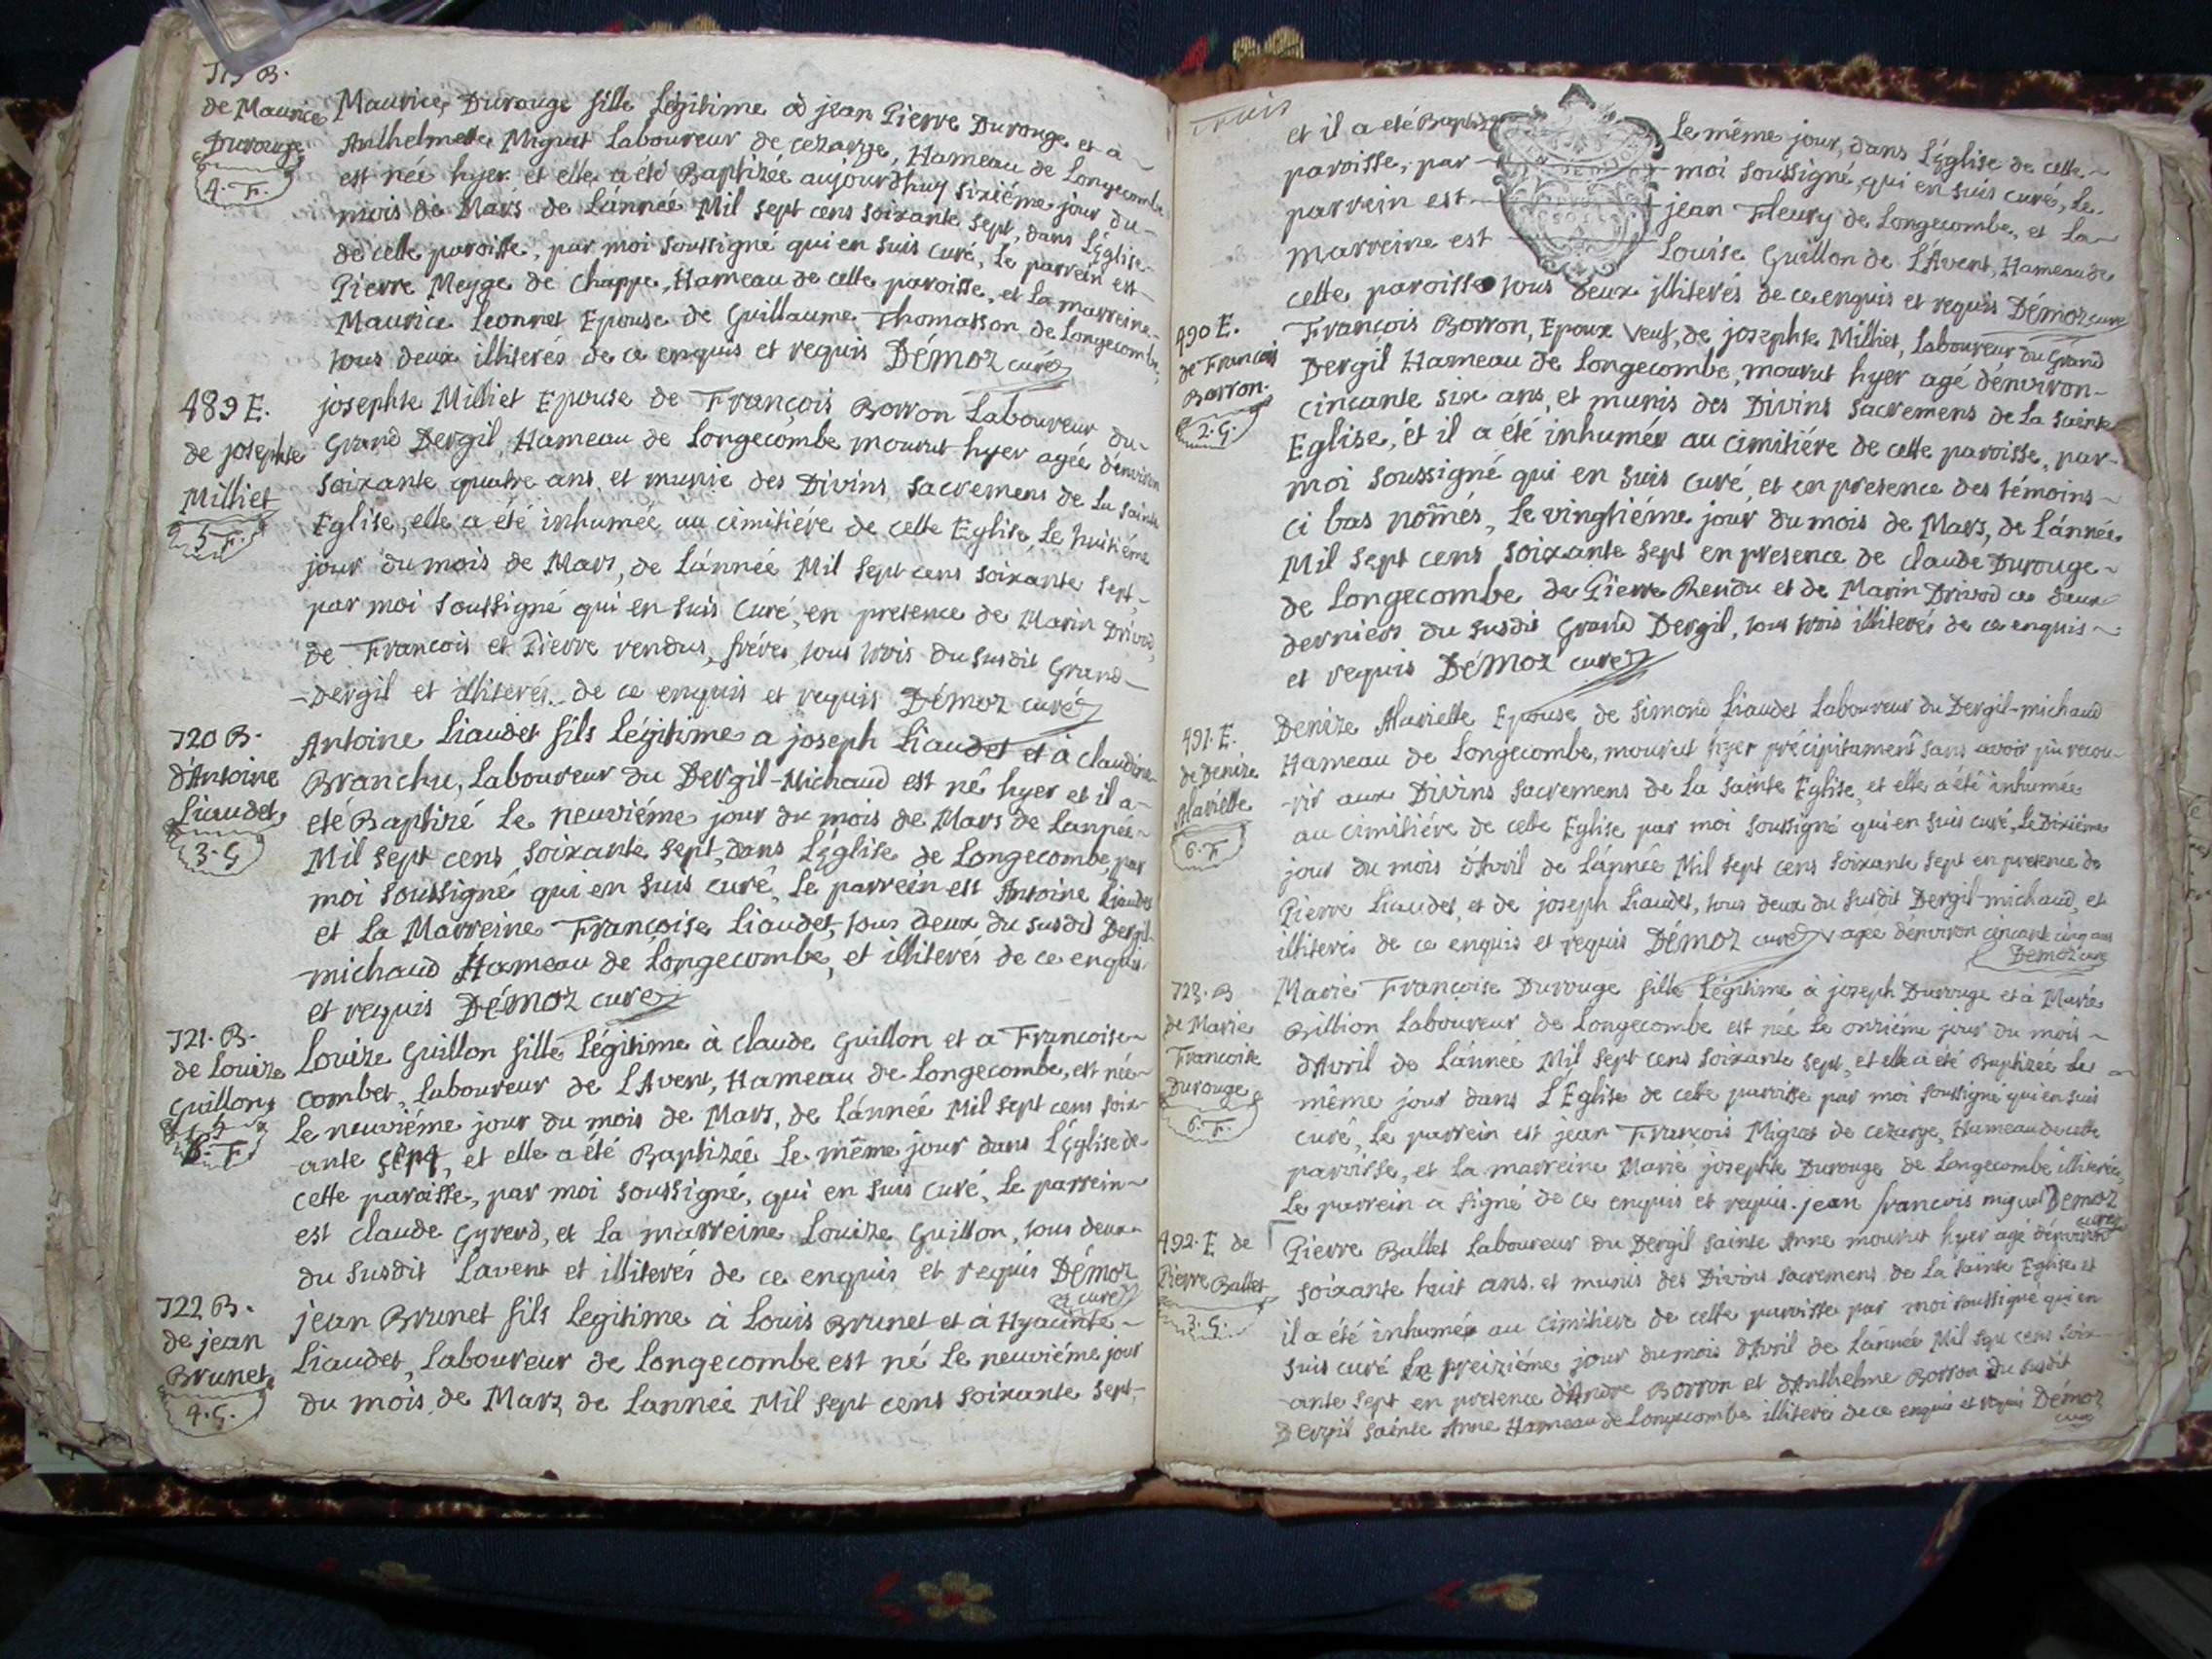 719 B.
de Maurice
Durouge
4. F.
Maurice Durouge fille légitime à jean Pierre Durouge et a
Anthelmette Miguet Laboureur de cezarge, Hameau de Longecombe
est née hyer et elle a été Baptizée aujourdhuy sixiéme jour du
mois de Mars de Lánnée Mil sept cens soixante sept, dans L'Eglise
de cette paroisse, par moi soussigné qui en suis curé, Le parrein est
Pierre Meyge de Chappe, Hameau de cette paroisse, et La marreine
Maurice Leonnet Epouse de Guillaume Thomasson de Longecombe,
tous deux illiterés de ce enquis et requis Démoz curé
489 E.
de josephte
Milliet
5. F.
josephte Milliet Epouse de François Borron Laboureur du
Grand Dergil, Hameau de Longecombe mourut hyer agée dénviron
soixante quatre ans, et munie des Divins sacremens de La sainte
Eglise, elle a été inhumée au cimitiére de cette Eglise Le huitiéme
jour du mois de Mars, de Lánnée Mil sept cens soixante sept,
par moi soussigné qui en suis curé, en presence de Marin Drivod,
de François et Pierre rendus, fréres, tous trois du susdit Grand
Dergil et illiterés de ce enquis et requis Démoz curé
720 B.
d'Antoine
Liaudet
3. G
Antoine Liaudet fils Légitime a joseph Liaudet et à claudine
Branchu, Laboureur du Dergil-Michaud est né hyer et il a
eté Baptizé Le neuviéme jour du mois de Mars de Lannée
Mil sept cens soixante sept, dans L'Eglise de Longecombe, par
moi soussigné qui en suis curé, Le parrein est Antoine Liaudet
et La Marreine Françoise Liaudet, tous deux du susdit Dergil
michaud Hameau de Longecombe, et illiterés de ce enquis
et requis Démoz curé
721. B.
de Louize
Guillon
F
Louize Guillon fille Légitime à claude Guillon et a Françoise
combet, Laboureur de L'Avent, Hameau de Longecombe, est née
Le neuviéme jour du mois de Mars, de Lánnée Mil sept cens soix-
ante sept, et elle a été Baptizée Le même jour dans L'Eglise de
cette paroisse, par moi soussigné, qui en suis curé, Le parrein
est claude Gyrerd, et La marreine Louize Guillon, tous deux
du susdit Lavent et illiterés de ce enquis et requis Démoz
curé
722 B.
de jean
Brunet
4. G.
jean Brunet fils Legitime à Louis Brunet et à Hyacinte
Liaudet, Laboureur de Longecombe est né Le neuviéme jour
du mois de Mars de Lannée Mil sept cens soixante sept
et il a eté Baptizé Le même jour, dans L'Eglise de cette
paroisse, par moi soussigné, qui en suis curé, Le
parrein est jean Fleury de Longecombe, et La
marreine est Louise Guillon de L'Avent, Hameau de
cette paroisse tous deux illiterés de ce enquis et requis Démoz curé
490 E.
de François
Borron.
2. G.
François Borron, Epoux veuf, de josephte Milliet, Laboureur du Grand
Dergil Hameau de Longecombe, mourut hyer agé dénviron
cincante six ans, et munis des Divins sacremens de La sainte
Eglise, et il a été inhumé au cimitiére de cette paroisse, par
moi soussigné qui en suis curé, et en presence des témoins
ci bas nom̃és, Le vingtiéme jour du mois de Mars, de Lánnée
Mil sept cens soixante sept en presence de claude Durouge
de Longecombe de Pierre Rendu et de Marin Drivod ces deux
derniers du susdit Grand Dergil, tous trois illiterés de ce enquis
et requis Démoz curé
491. E.
de Denize
Mariette
6. F
Denize Mariette Epouse de Simond Liaudet Laboureur du Dergil-michaud
Hameau de Longecombe, mourut hyer précipitament sans avoir pu recou-
-rir aux Divins sacremens de La sainte Eglise, et elle a été inhumée
au cimitiére de cette Eglise par moi soussigné qui en suis curé, Le Dixiéme
jour du mois d'Avril de Lánnée Mil sept cens soixante sept en presence de
Pierre Liaudet, et de joseph Liaudet, tous deux du susdit Dergil-michaud, et
illiterés de ce enquis et requis Démoz curé agée dénviron cincante cinq ans
Démoz curé
723. B
de Marie
Françoise
Durouge
6. F.
Marie Françoise Durouge fille Légitime à joseph Durouge et à Marie
Billion Laboureur de Longecombe est née Le onziéme jour du mois
d'Avril de Lánnée Mil sept cens soixante sept, et elle a été Baptizée Le
même jour dans L'Eglise de cette paroisse par moi soussigné qui en suis
curé, Le parrein est jean François Miguet de cezarge, Hameau de cette
paroisse, et La marreine Marie josephte Durouge de Longecombe illiterée,
Le parrein a signé de ce enquis et requis. jean francois miguet Démoz
curé
492. E de
Pierre Ballet
3. G.
Pierre Ballet Laboureur du Dergil sainte Anne mourut hyer agé dénviron
soixante huit ans, et munis des Divins sacremens de La sainte Eglise et
il a été inhumé au cimitiére de cette paroisse par moi soussigné qui en
suis curé Le treiziéme jour du mois d'Avril de Lánnée Mil sept cens soix
-ante sept en presence d'Andre Borron et d'Anthelme Borron du susdit
Dergil sainte Anne Hameau de Longecombe illiterés de ce enquis et requis Démoz
curé